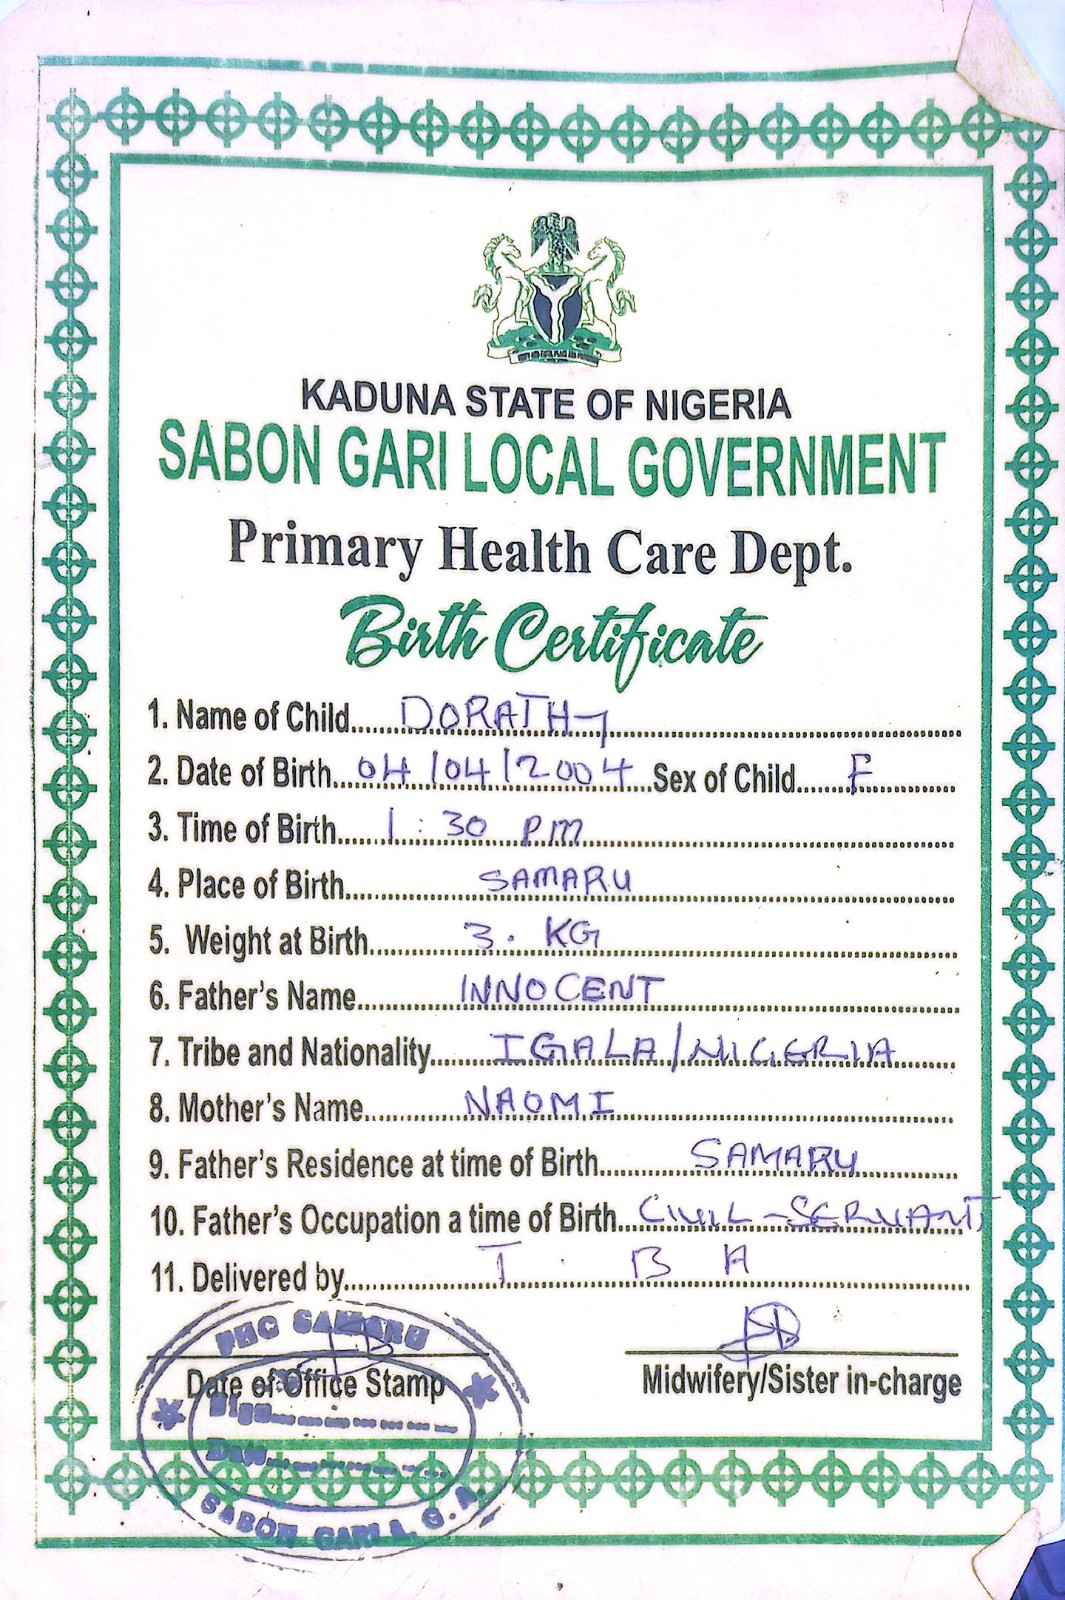 KADUNA STATE OF NIGERIA
SABON GARI LOCAL GOVERNMENT
Primary Health Care Dept.
Birth Certificate
1. Name of Child.....DORATHY
2. Date of Birth...04/04/2004 Sex of Child.......F
3. Time of Birth.....1:30 PM
4. Place of Birth....SAMARU
5. Weight at Birth....3. KG
6. Father's Name....INNOCENT
7. Tribe and Nationality....IGALA/NIGERIA
8. Mother's Name....NAOMI
9. Father's Residence at time of Birth....SAMARU
10. Father's Occupation a time of Birth...CIVIL-SERVANT
11. Delivered by....T. B A
PHC SAMARU
Date of Office Stamp
Midwifery/Sister in-charge
Sign
SABON GARI L. G. A.